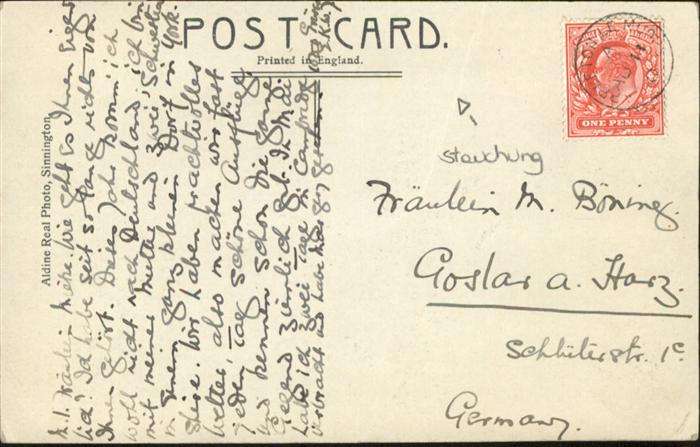 POST CARD.
Printed in England.
ONE PENNY
Aldine Real Photo, Sinnington
Fräulein M. Böning.
Goslar a. Harz.
Schlüterstr. 1c.
Germany.
Fräulein Wie geht es Ihnen
Ich habe seit so lange nichts von
Ihnen gehört. Dieses Jahr komm ich
wohl nicht nach Deutschland, ich bin
mit meiner Mutter und zwei Schwestern
in einem ganz kleinen Dorf in York-
shire. Wir haben prachtvolles
Wetter, also machen wir fast
jeden Tag schöne Ausflüge,
und kennen schon die ganze
Gegend ziemlich gut. Im Mai
habe ich zwei Tage in Cambridge
verbracht und habe